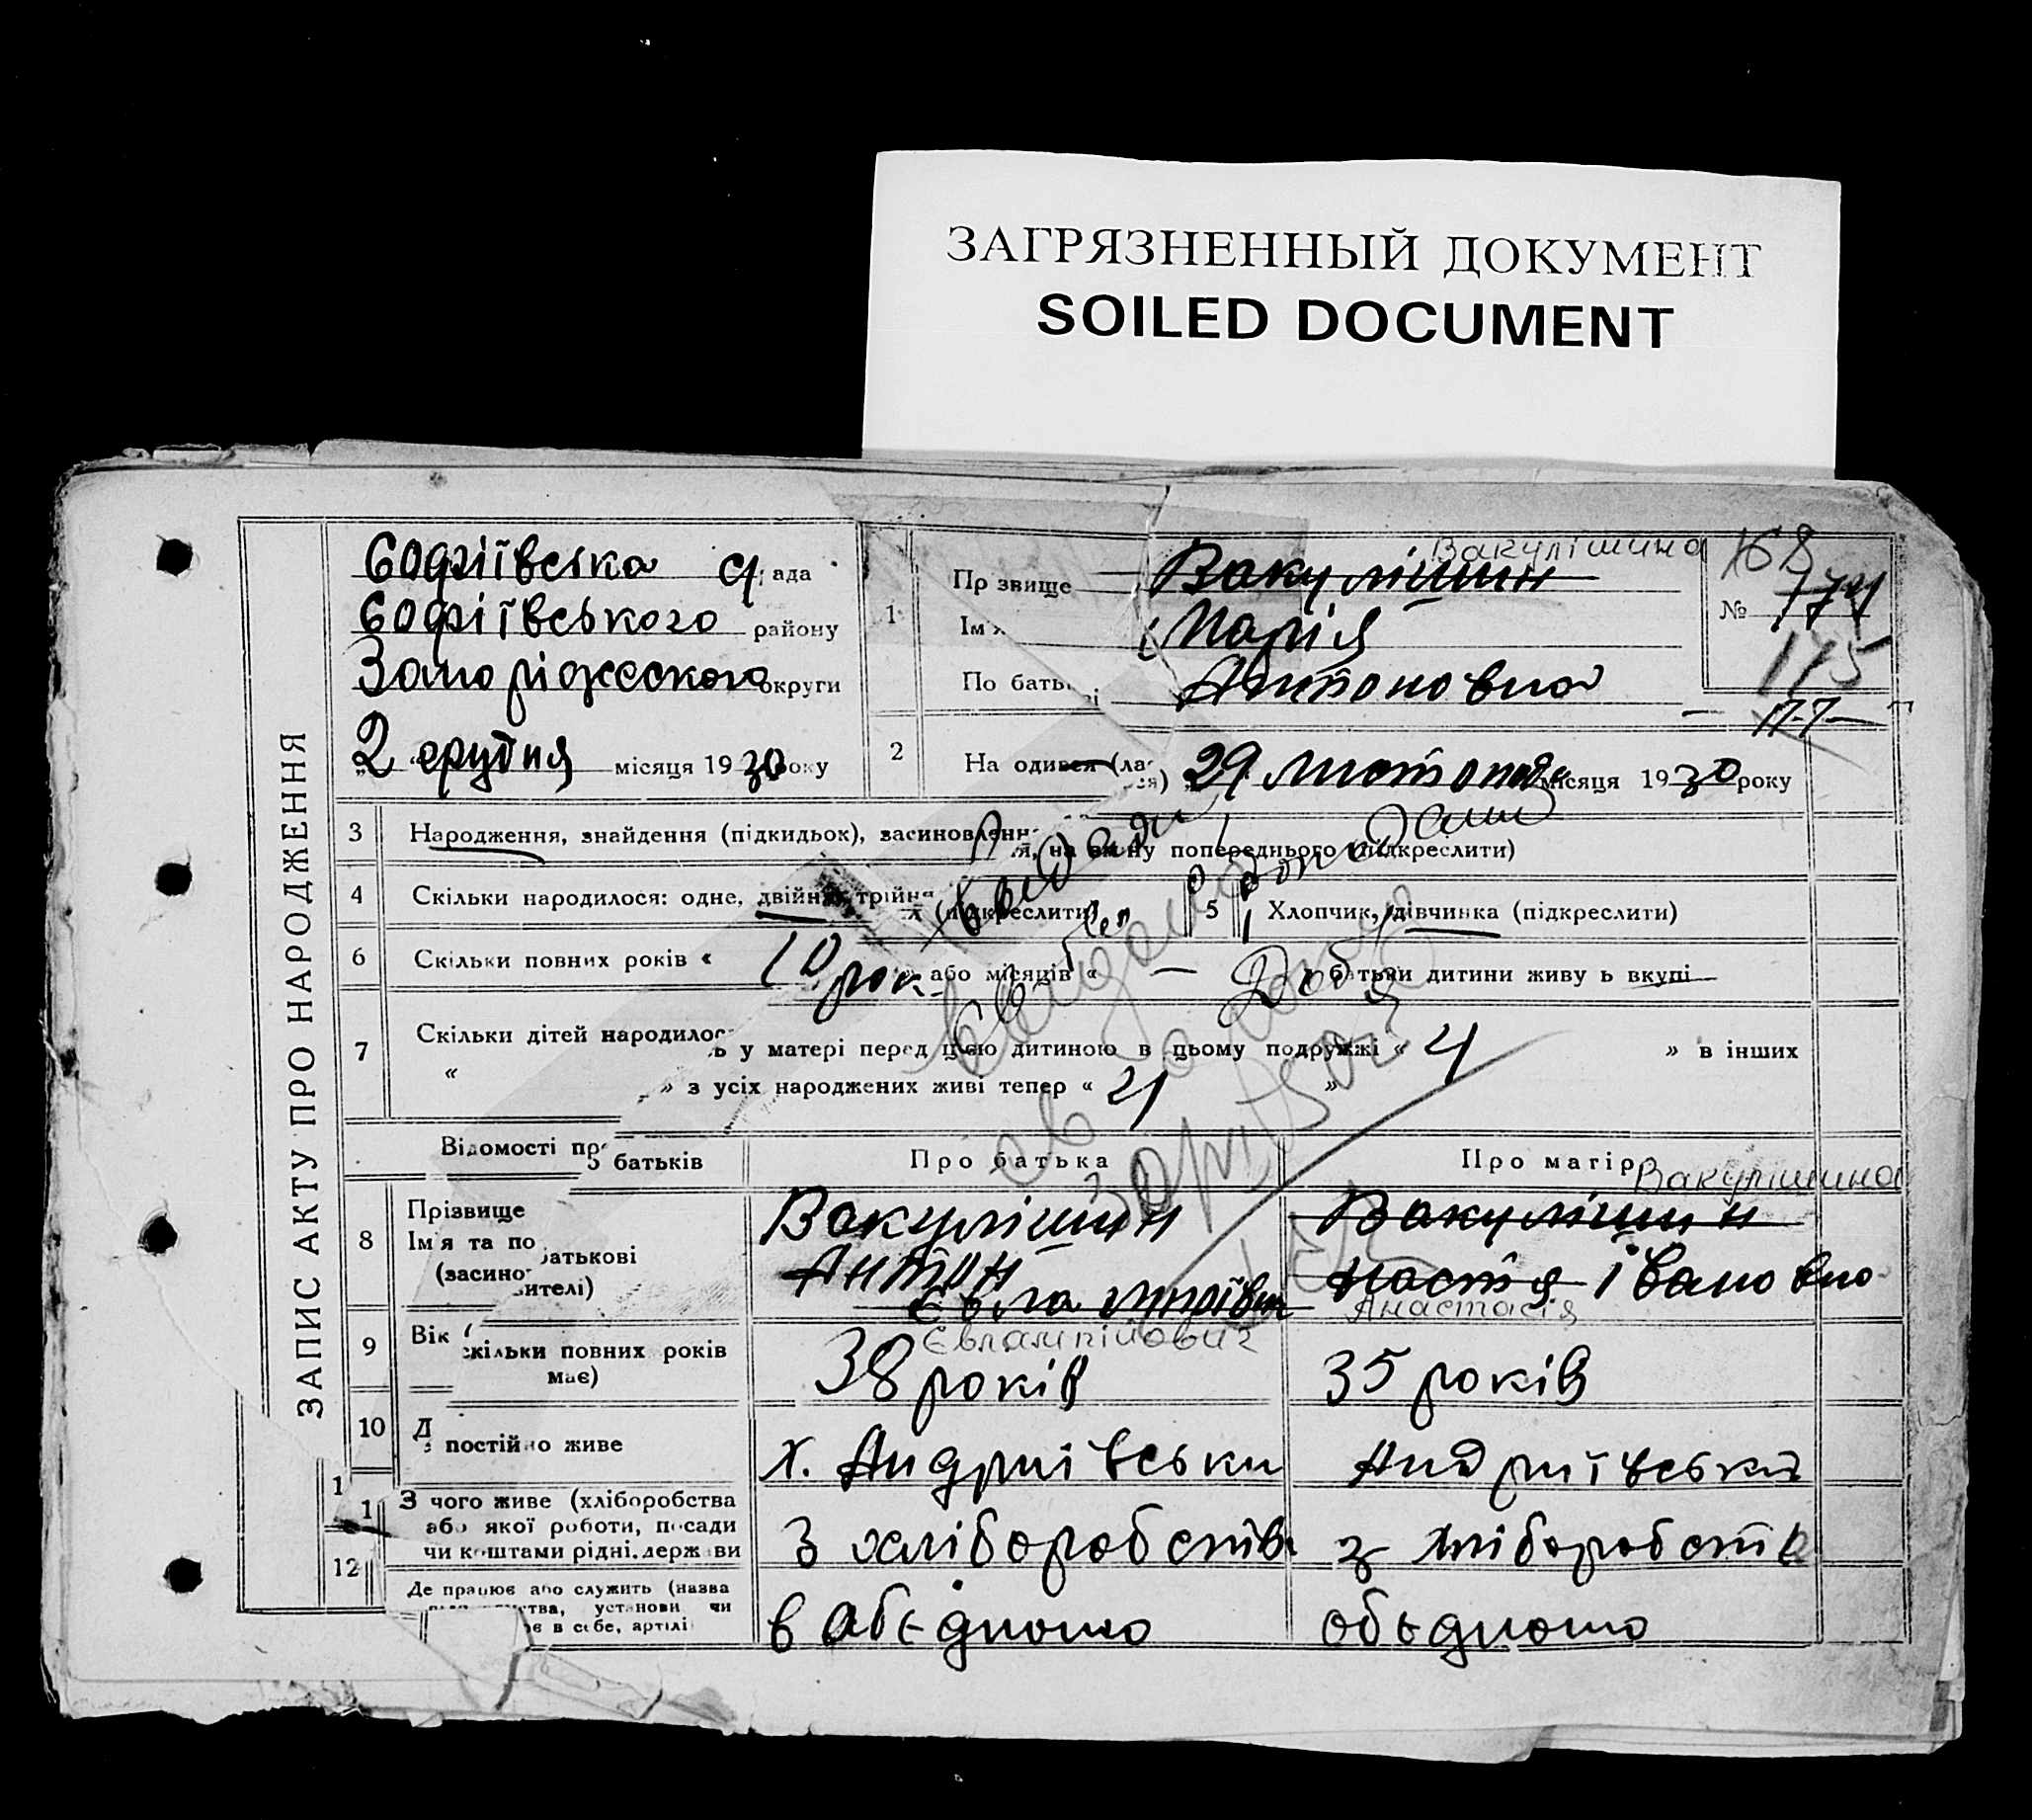 ЗАГРЯЗНЕННЫЙ ДОКУМЕНТ
SOILED DOCUMENT
ЗАПИС АКТУ ПРО НАРОДЖЕННЯ
Софіївська с рада
Софіївського району
округи
„2“ грудня місяця 1930 року
1
Вакулішина
Пр звище Вакулішин
Ім'я Марія
По батькові Антоновна
168
№ 174
175
2
На одився (лася) „29 листопада місяця 1930 року
3 Народження, знайдення (підкидьок), засиновлення, на зміну попереднього (підкреслити)
4 Скільки народилося: одне, двійня, трійня (підкреслити)
5 Хлопчик, дівчинка (підкреслити)
6 Скільки повних років « 10 рок » або місяців « — батьки дитини живуть вкупі
7 Скільки дітей народилось у матері перед цією дитиною в цьому подружжі « 4 » в інших
« » з усіх народжених живі тепер « 4 »
Відомості про батьків
Про батька
Про матір
Вакулішина
8 Прізвище
Ім'я та по батькові
(засиновителі)
Вакулішин
Антон
Євлампійович
Вакулішин
Настя Івановна
Анастасія
9 Вік (скільки повних років має)
38 років
35 років
10 Де постійно живе
х. Андріївськи
Андріївський
11 З чого живе (хліборобства
або якої роботи, посади
чи коштами рідні, держави
З хліборобств
з хліборобств
12 Де працює або служить (назва
установи чи
в себе, артілі